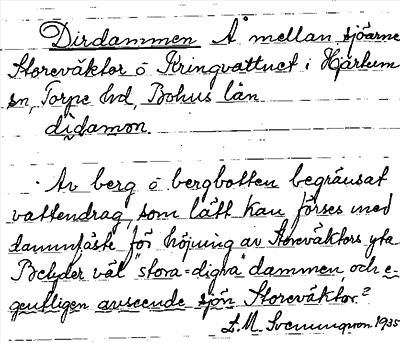 Dirdammen Å mellan sjöarne
Storeväktor o Kringvattnet i Hjärtum
sn, Torpe hd, Bohus län
didamon.
Av berg o bergbotten begränsat
vattendrag som lätt kan förses med
dammfäste för höjning av Storeväktors yta
Betyder väl "stora=digra" dammen, och e-
gentligen avseende sjön Storeväktor.?
D.M. Svenungson 1935